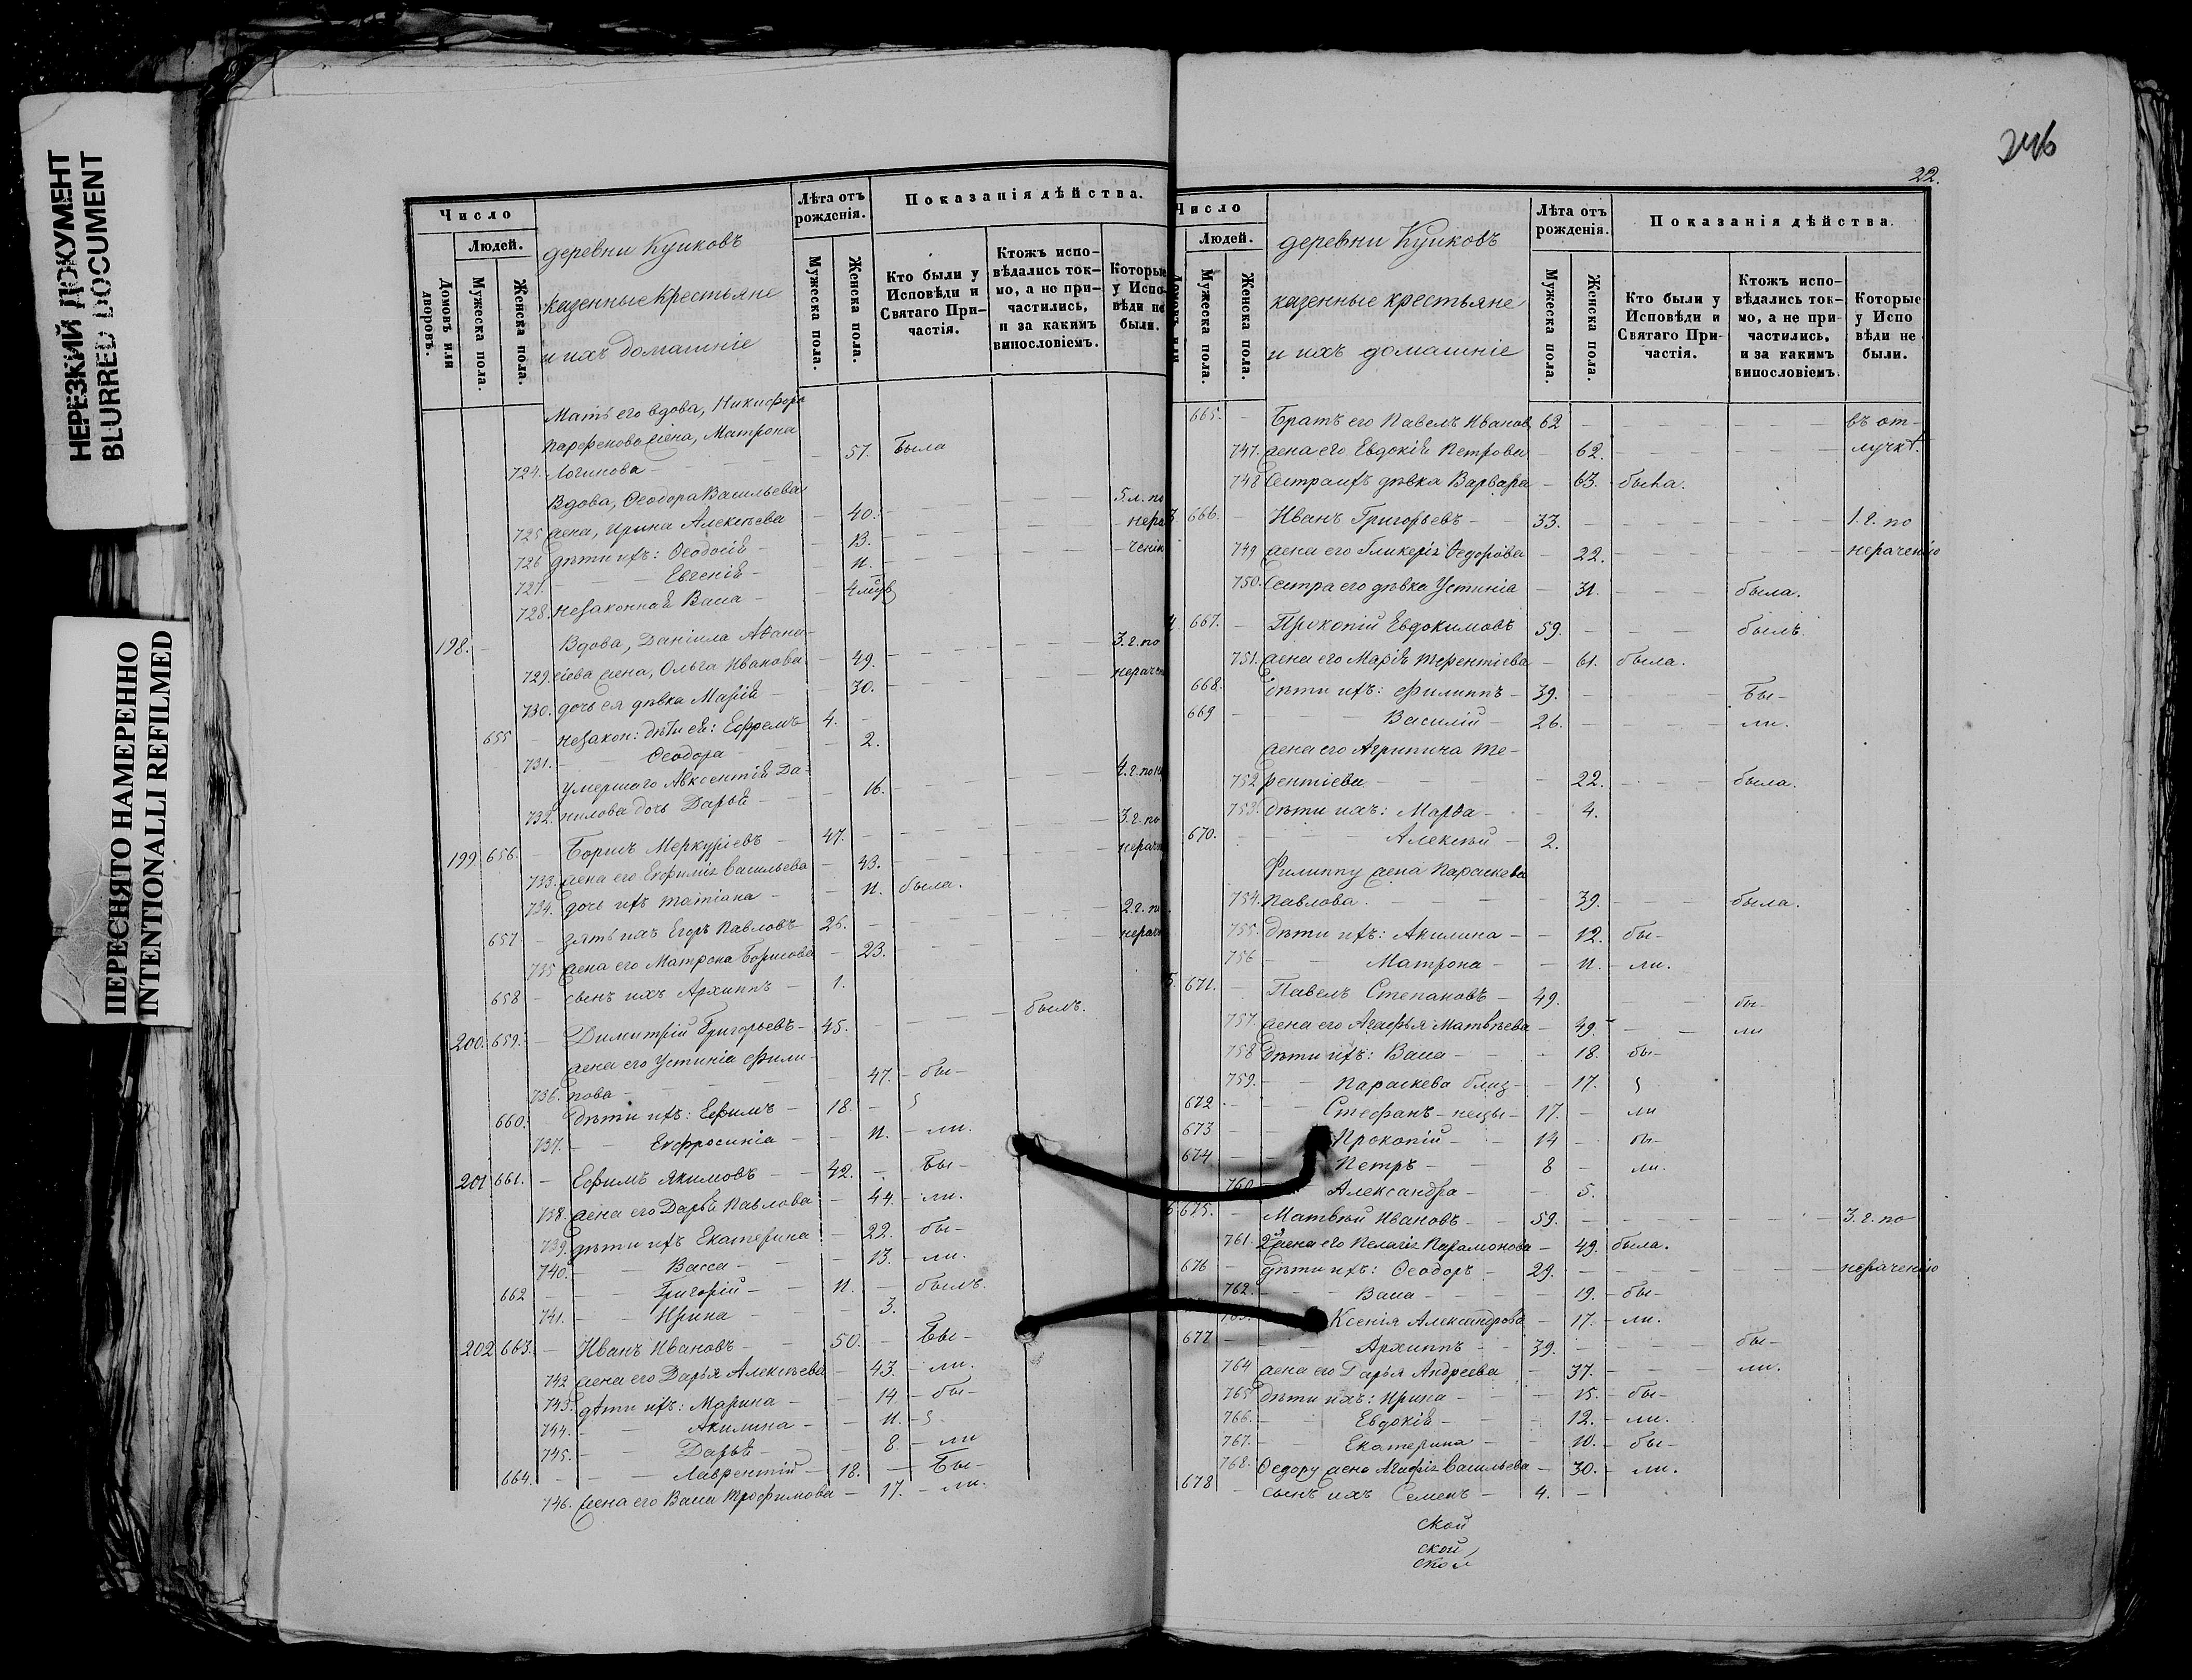 НЕРЕЗКИЙ ДОКУМЕНТ
BLURRED DOCUMENT
ПЕРЕСНЯТО НАМЕРЕННО
INTENTIONALLI REFILMED
Число
Людей.
Домовъ или дворовъ.
Мужеска пола.
Женска пола.
деревни Куиковъ
казенные крестьяне
и ихъ домашніе
Лѣта отъ рожденія.
Мужеска пола.
Женска пола.
Показанія дѣйства.
Кто были у Исповѣди и Святаго При-частія.
Ктожъ испо-вѣдались ток-мо, а не при-частились, и за какимъ винословіемъ.
Которые у Испо-вѣди не были.
Мать его вдова, Никифора
Парфенова жена, Матрона
724. Логинова - 57. была
Вдова, Ѳеодора Васильева 5. л. по
725 жена, Ирина Алексѣева - 40. - нера
726 дѣти ихъ: Ѳеодосія - 13. - ченію
727. Евгенія - 11. -
728. незаконная Васса - 4 мѣсяц
198. - Вдова, Даніила Аѳана-
729. сіева жена, Ольга Иванова - 49. - 3. г. по
730. дочь ея дѣвка Марія - 30. - нерачен
655 - незакон: дѣти ея: Ефремъ 4. -
731. Ѳеодора - 2.
умершаго Авксентія Да-
732. нилова дочь Дарья - 16. - 4. г. по н
199 656. - Борисъ Меркуріевъ - 47. - 3. г. по
733. жена его Евфимія Васильева - 43. - нерач
734. дочь ихъ Татіана - 11. была.
657 - зять ихъ Егоръ Павловъ 26. - 2. г. по
735 жена его Матрона Борисова - 23. - нерач
658 - сынъ ихъ Архиппъ - 1.
200. 659. - Димитрій Григорьевъ - 45. - былъ.
жена его Устинія Фили-
736. пова - 47. - бы-
660. дѣти ихъ: Ефимъ - 18. -
737. - Евфросинія - 11. - ли.
201 661. - Ефимъ Якимовъ - 42. - Бы-
738. жена его Дарья Павлова - 44. - ли.
739. дѣти ихъ Екатерина - 22. - бы-
740. - Васса - 13. - ли.
662 - Григорій - 11. - былъ.
741. - Ирина - 3.
202 663. - Иванъ Ивановъ - 50. - Бы-
742 жена его Дарья Алексѣева - 43. ли.
743. дѣти ихъ: Марина - 14 - бы-
744. - Акилина - 11. -
745. - Дарья - 8. - ли
664. - Лаврентій - 18. - Бы-
746. жена его Васса Трофимова - 17. - ли.
246
22.
Число
Людей.
Домовъ или
Мужеска пола.
Женска пола.
деревни Куиковъ
казенные крестьяне
и ихъ домашніе
Лѣта отъ рожденія.
Мужеска пола.
Женска пола.
Показанія дѣйства.
Кто были у Исповѣди и Святаго При-частія.
Ктожъ испо-вѣдались ток-мо, а не при-частились, и за какимъ винословіемъ.
Которые у Испо вѣди не были.
665. - Братъ его Павелъ Иванов 62 - въ от-
747. жена его Евдокія Петрова - 62. - лучкѣ.
748 Сестра ихъ дѣвка Варвара - 63. была.
3. 666. - Иванъ Григорьевъ - 33. - 1. г. по
749 жена его Гликерія Ѳедорова - 22. - нераченію
750. Сестра его дѣвка Устинія - 31. - была.
4 667. - Прокопій Евдокимовъ 59. - былъ.
751. жена его Марія Терентіева - 61. была.
668. дѣти ихъ: Филиппъ - 39. - Бы-
669 - Василій - 26. - ли.
жена его Агрипина Те-
752 рентіева - 22. - была.
753. дѣти ихъ: Марѳа - 4.
670. - Алексѣй - 2.
Филиппу жена Параскева
754. Павлова. - 39. - была.
755. дѣти ихъ: Акилина - 12. бы-
756 - Матрона - 11. - ли.
5. 671. - Павелъ Степановъ - 49. - бы-
757. жена его Агафья Матвѣева - 49. - ли
758 дѣти ихъ: Васса - 18. бы-
759. - Параскева близ- - 17.
672 - Стефанъ - нецы - 17. - ли
673 - Прокопій - 14 - бы-
674 - Петръ - 8 - ли.
760 - Александра - 5.
6 675. - Матвѣй Ивановъ - 59. - 3. г. по
761. 2я жена его Пелагія Парамонова - 49. была.
676 - дѣти ихъ: Ѳеодоръ - 29. - нераченію
762. - Васса - 19. - бы-
763. - Ксенія Александрова - 17. - ли.
677 - Архиппъ - 39. - бы-
764 жена его Дарья Андреева - 37. - ли.
765 дѣти ихъ: Ирина - 15. - бы-
766. - Евдокія - 12. - ли.
767. - Екатерина - 10. - бы-
768. Ѳедору жена Агафія Васильева - 30. - ли.
678 - сынъ ихъ Семенъ - 4. -
ской
ской
ской